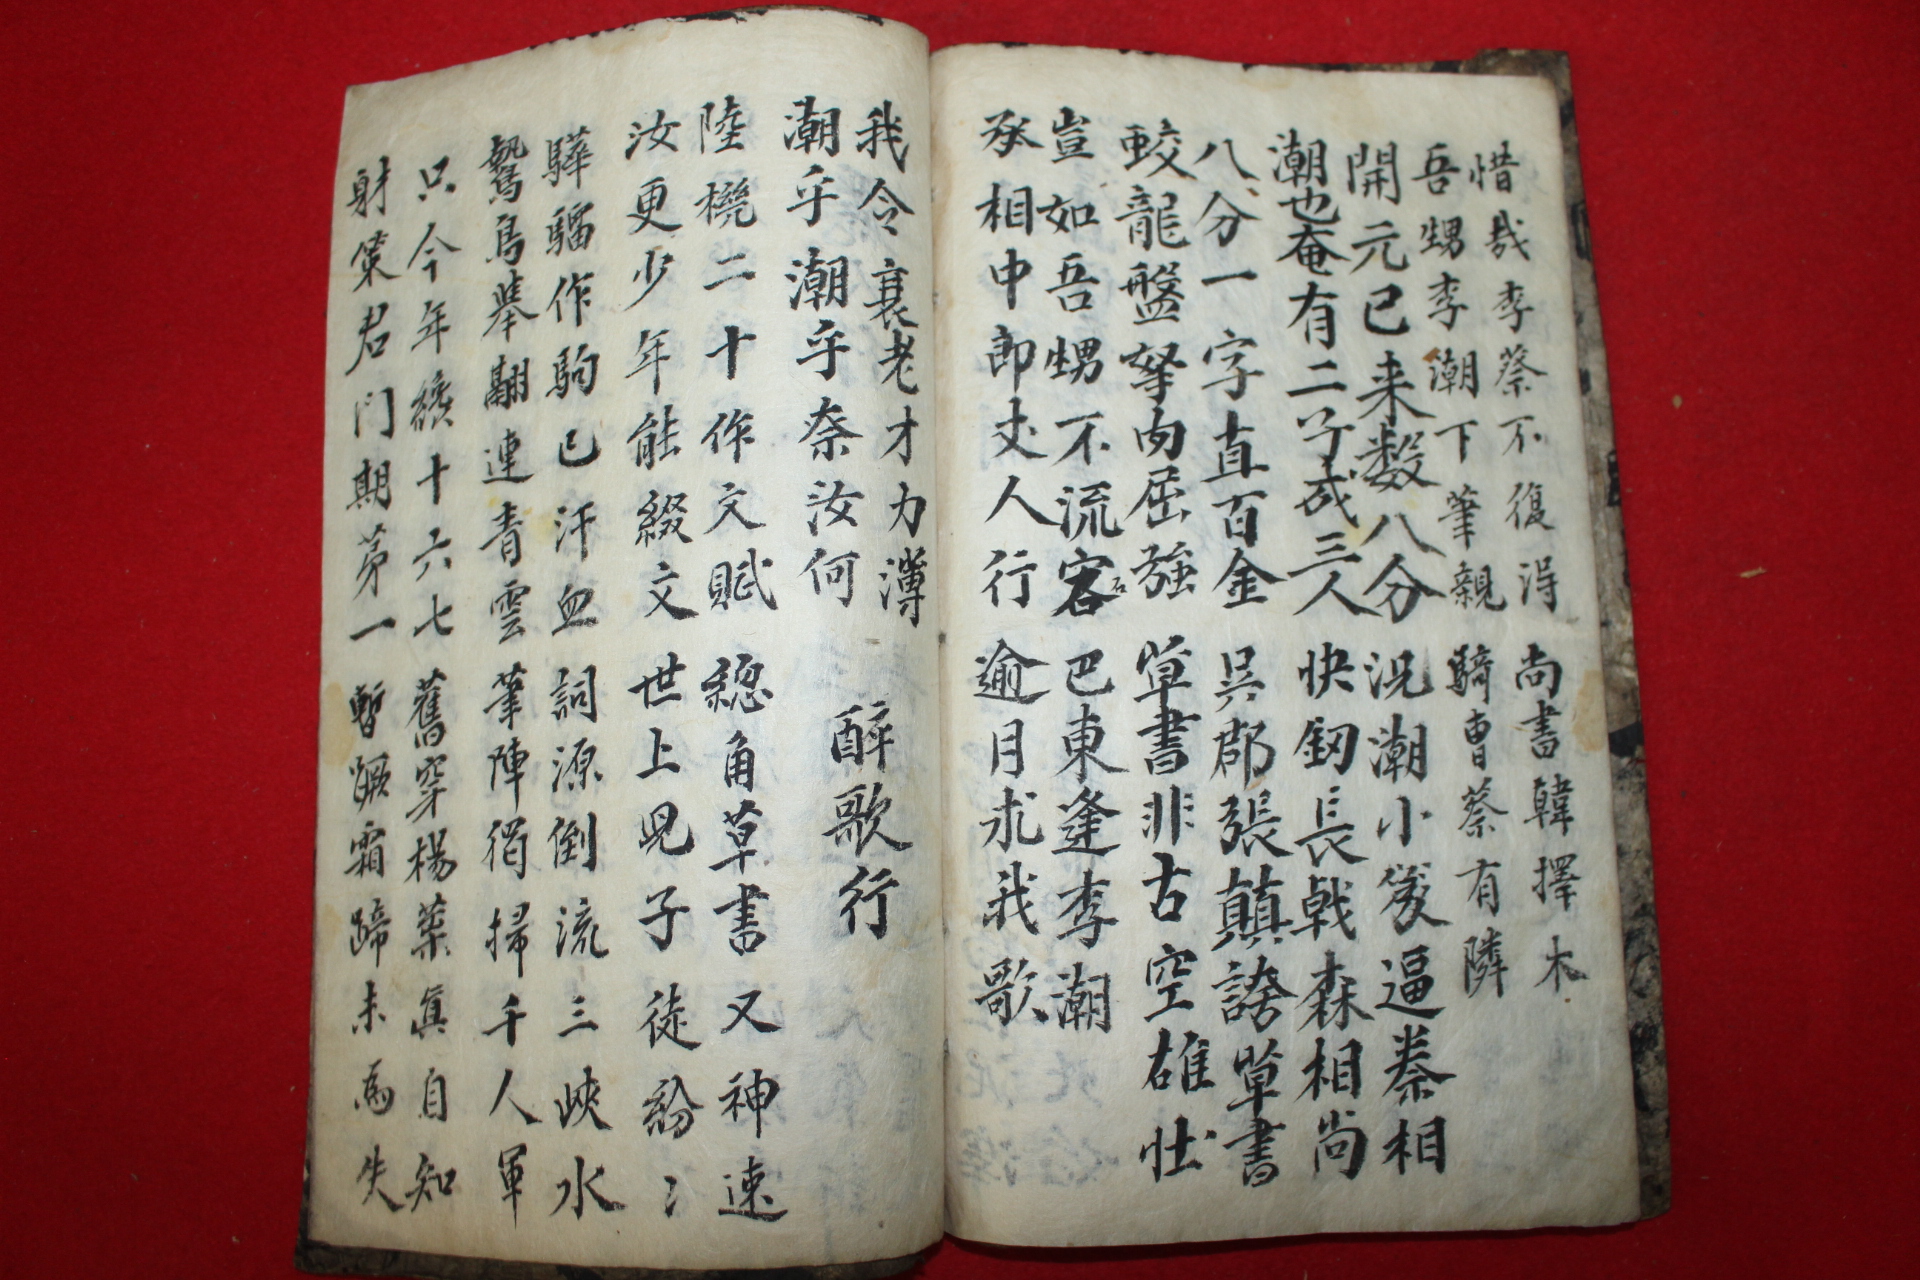 惜哉李蔡不復淂　尚書韓擇木
吾甥李潮下筆親　騎曹蔡有隣
開元已来数八分　况潮小篆逼秦相
潮也奄有二子成三人　快釰長戟森相尚
八分一字直百金　吳郡張顛誇草書
蛟龍盤拏肉屈強　草書非古空雄壮
豈如吾甥不流宕　巴東逢李潮
丞相中郎丈人行　逾月求我歌
我今衰老才力薄
潮乎潮乎奈汝何
醉歌行
陸機二十作文賦　総角草書又神速
汝更少年能綴文　世上児子徒紛〻
驊騮作駒已汗血　詞源倒流三峽水
鷙鳥舉翮連青雲　筆陣獨掃千人軍
只今年纔十六七　舊穿楊葉真自知
射策君門期第一　暫蹶霜蹄未為失